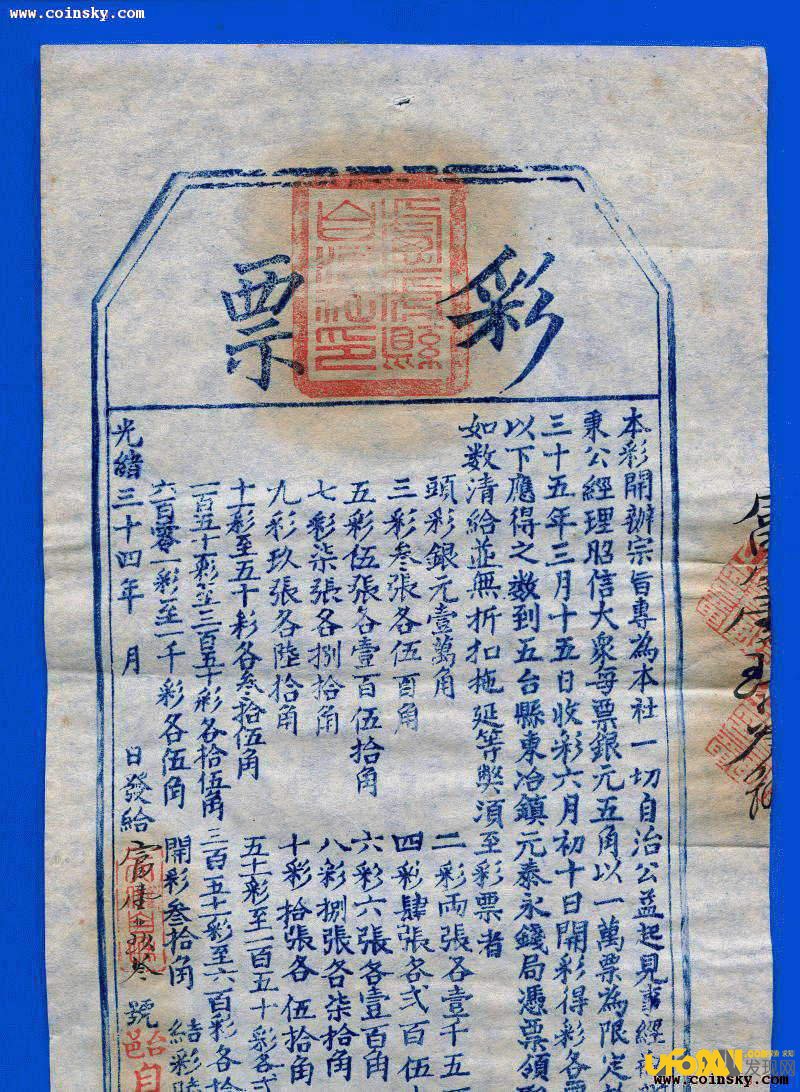 www.coinsky.com
www.coinsky.com
彩票
本彩開辦宗旨專為本社一切自治公益起見事經
秉公經理昭信大衆每票銀元五角以一萬票為限定
三十五年三月十五日收彩六月初十日開彩得彩各
以下應得之数到五台縣東冶鎮元泰永錢局憑票領
如数清給並無折扣拖延等獘須至彩票者
頭彩銀元壹萬角
二彩両張各壹千五
三彩叁張各伍百角
四彩肆張各弍百伍
五彩伍張各壹百伍拾角
六彩六張各壹百角
七彩柒張各捌拾角
八彩捌張各柒拾角
九彩玖張各陸拾角
十彩拾張各伍拾角
十一彩至五十彩各叁拾伍角
五十一彩至一百五十彩各弍
一百五十一彩至三百五十彩各拾伍角
三百五十一彩至六百彩各拾
六百零一彩至一千彩各伍角
開彩叁拾角
結彩陸
光緒三十四年 月 日發給 富 號
自
UFO 发现网
www.coinsky.com